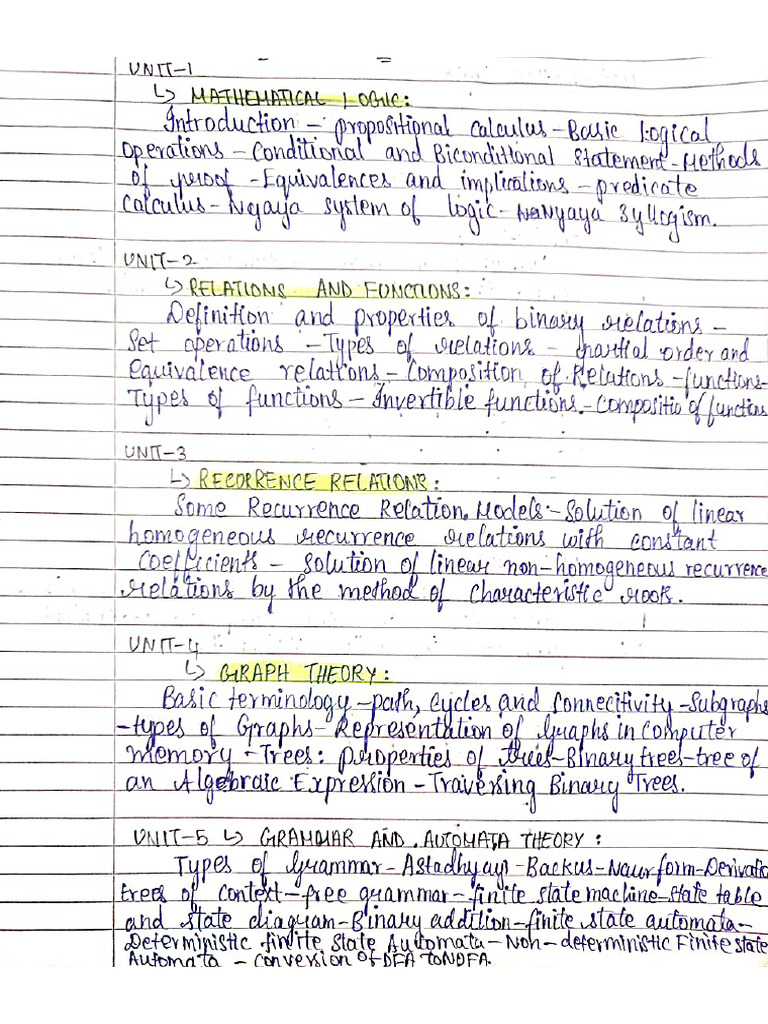 UNIT-1
↳ MATHEMATICAL LOGIC:
Introduction - propositional calculus - Basic Logical
Operations - Conditional and Biconditional Statement - Methods
of proof - Equivalences and implications - predicate
calculus - Nyaya system of logic - NaNyaya Syllogism.
UNIT-2
↳ RELATIONS AND FUNCTIONS:
Definition and properties of binary relations -
Set operations - Types of relations - partial order and
Equivalence relations - Composition of Relations - functions -
Types of functions - Invertible functions - Compositio of functions
UNIT-3
↳ RECORRENCE RELATIONS:
Some Recurrence Relation Models - Solution of linear
homogeneous recurrence relations with constant
coefficients - solution of linear non-homogeneous recurrence
relations by the method of characteristic roots.
UNIT-4
↳ GRAPH THEORY:
Basic terminology - path, cycles and Connecitivity - Subgraphs
-types of Graphs - Representation of Graphs in Computer
memory - Trees: properties of trees - Binary trees - tree of
an Algebraic Expression - Traversing Binary Trees.
UNIT-5 ↳ GRAMMAR AND AUTOMATA THEORY:
Types of Grammar - Astadhyayi - Backus - Naur form - Derivatio
trees of context - free grammar - finite state machine - state table
and state diagram - Binary addition - finite state automata -
Deterministic finite state Automata - Non-deterministic Finite state
Automata - conversion of DFA to NDFA.